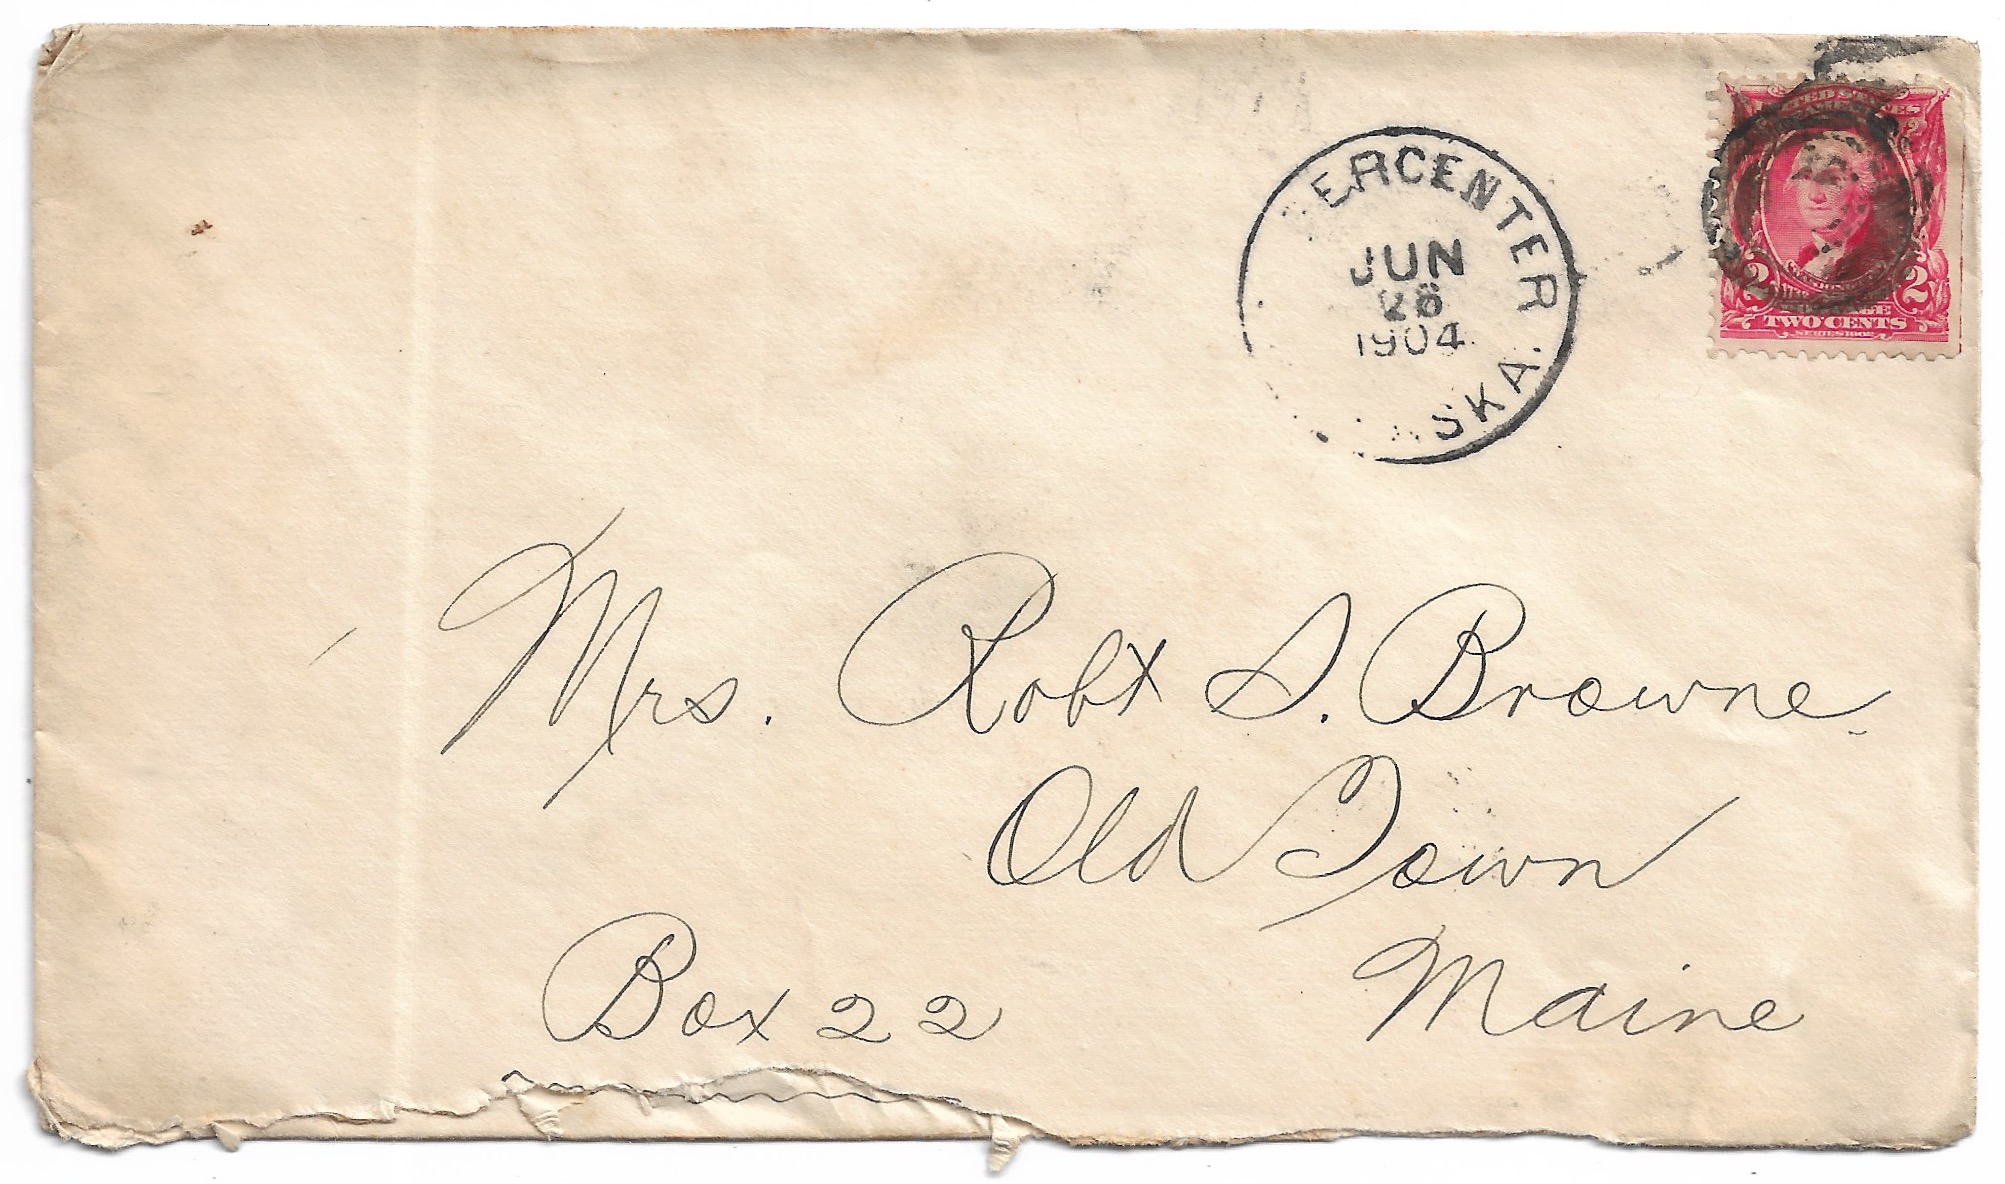 ERCENTER
JUN
26
1904
SKA.
UNITED STATES
2 2
TWO CENTS
SERIES 1902
Mrs. Robt S. Browne
Old Town
Box 22 Maine